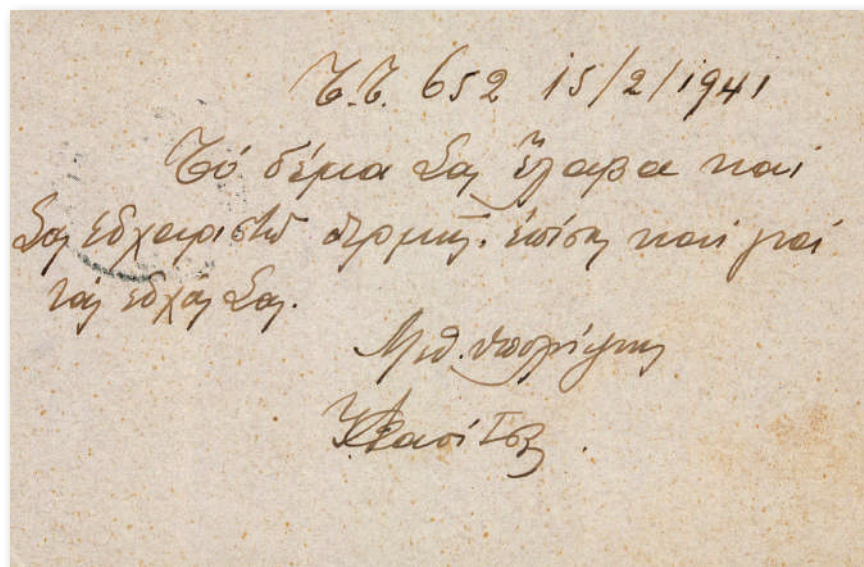 Τ.Τ. 652 15/2/1941
Τό δέμα Σας ἔλαβα καί
Σας εὐχαριστῶ θερμῶς. ἐπίσης καί γιά
τάς εὐχάς Σας.
Μεθ. ὑπολήψεως